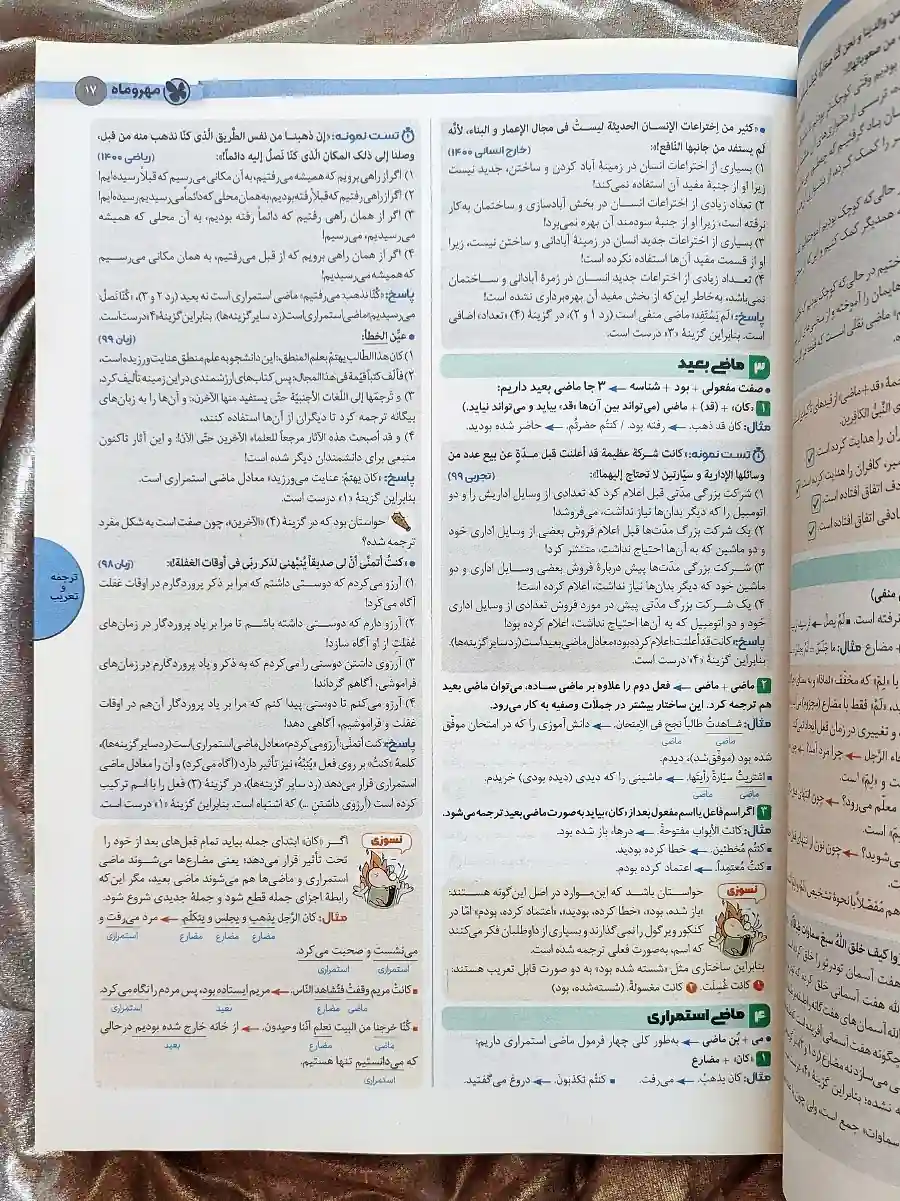 مهروماه ۱۷
• «کثیر من اختراعات الإنسان الحدیثة لیستْ في مجال الإعمار و البناء، لأنّه
لَم یستفد من جانبها النّافع!»: (خارج انسانی ۱۴۰۰)
۱) بسیاری از اختراعات انسان در زمینهٔ آباد کردن و ساختن، جدید نیست
زیرا او از جنبهٔ مفید آن استفاده نمی‌کند!
۲) تعداد زیادی از اختراعات انسان در بخش آبادسازی و ساختمان به‌کار
نرفته است، زیرا او از جنبهٔ سودمند آن بهره نمی‌برد!
۳) بسیاری از اختراعات جدید انسان در زمینهٔ آبادانی و ساختن نیست، زیرا
او از قسمت مفید آن‌ها استفاده نکرده است!
۴) تعداد زیادی از اختراعات جدید انسان در زمرهٔ آبادانی و ساختمان
نمی‌باشد، به‌خاطر این‌که از بخش مفید آن بهره‌برداری نشده است!
پاسخ: «لَم یَستَفِد» ماضی منفی است (رد ۱ و ۲)، در گزینهٔ (۴) «تعداد» اضافی
است. بنابراین گزینهٔ «۳» درست است.
۳ ماضی بعید
• صفت مفعولی + بود + شناسه ← ۳ جا ماضی بعید داریم:
۱ «کان» + (قد) + ماضی (می‌تواند بین آن‌ها «قد» بیاید و می‌تواند نیاید.)
مثال: کان قد ذهب. ← رفته بود. / کنتُم حضرتُم. ← حاضر شده بودید.
تست نمونه: «کانت شرکة عظیمة قد أعلنت قبل مدّةٍ عن بیع عدد من
وسائلها الإداریة و سیّارتین لا تحتاج إلیهما!»: (تجربی ۹۹)
۱) شرکت بزرگی مدّتی قبل اعلام کرد که تعدادی از وسایل اداریش را و دو
اتومبیل را که دیگر بدان‌ها نیاز نداشت، می‌فروشد!
۲) یک شرکت بزرگ مدّت‌ها قبل اعلام فروش بعضی از وسایل اداری خود
و دو ماشین که به آن‌ها احتیاج نداشت، منتشر کرد!
۳) شرکت بزرگی مدّت‌ها پیش دربارهٔ فروش بعضی وسایل اداری و دو
ماشین خود که دیگر بدان‌ها نیاز نداشت، اعلام کرده است!
۴) یک شرکت بزرگ مدّتی پیش در مورد فروش تعدادی از وسایل اداری
خود و دو اتومبیل که به آن‌ها احتیاج نداشت، اعلام کرده بود!
پاسخ: کانت قد أعلنت: اعلام کرده بود؛ معادل ماضی بعید است (رد سایر گزینه‌ها).
بنابراین گزینهٔ «۴» درست است.
۲ ماضی + ماضی ← فعل دوم را علاوه بر ماضی ساده، می‌توان ماضی بعید
هم ترجمه کرد. این ساختار بیشتر در جملات وصفیه به کار می‌رود.
مثال: شاهدتُ طالباً نجح في الإمتحان. ← دانش‌آموزی را که در امتحان موفّق
ماضی ماضی
شده بود (موفّق شد)، دیدم.
▪ اشتریتُ سیّارةً رأیتَها. ← ماشینی را که دیدی (دیده بودی) خریدم.
ماضی ماضی
۳ اگر اسم فاعل یا اسم مفعول بعد از «کان» بیاید به‌صورت ماضی بعید ترجمه می‌شود.
مثال: کانت الأبواب مفتوحةً. ← درها، باز شده بود.
▪ کنتُم مُخطئین. ← خطا کرده بودید.
▪ کنتُ مُعتمِداً. ← اعتماد کرده بودم.
نسوزی
حواستان باشد که این موارد در اصل این‌گونه هستند:
«باز شده، بود»، «خطا کرده، بودید»، «اعتماد کرده، بودم» امّا در
کنکور ویرگول را نمی‌گذارند و بسیاری از داوطلبان فکر می‌کنند
که اسم، به‌صورت فعلی ترجمه شده است.
بنابراین ساختاری مثل «شسته شده بود» به دو صورت قابل تعریب هستند:
۱ کانت غُسِلَت. ۲ کانت مغسولةً. (شسته‌شده، بود)
۴ ماضی استمراری
• می + بُن ماضی ← به‌طور کلی چهار فرمول ماضی استمراری داریم:
۱ «کان» + مضارع
مثال: کان یذهبُ. ← می‌رفت. ▪ کنتُم تکذبونَ. ← دروغ می‌گفتید.
تست نمونه: «إن ذهبنا من نفس الطّریق الّذي کنّا نذهب منه من قبل،
وصلنا إلی ذلک المکان الّذي کنّا نَصلُ إلیه دائماً!»: (ریاضی ۱۴۰۰)
۱) اگر از راهی برویم که همیشه می‌رفتیم، به آن مکانی می‌رسیم که قبلاً رسیده‌ایم!
۲) اگر از راهی رفتیم که قبلاً رفته بودیم، به همان محلی که دائماً می‌رسیدیم رسیده‌ایم!
۳) اگر از همان راهی رفتیم که دائماً رفته بودیم، به آن محلی که همیشه
می‌رسیدیم، می‌رسیم!
۴) اگر از همان راهی برویم که از قبل می‌رفتیم، به همان مکانی می‌رسیم
که همیشه می‌رسیدیم!
پاسخ: «کُنّا نذهب: می‌رفتیم» ماضی استمراری است نه بعید (رد ۲ و ۳)، «کُنّا نَصلُ:
می‌رسیدیم» ماضی استمراری است (رد سایر گزینه‌ها). بنابراین گزینهٔ «۴» درست است.
• عیّن الخطأ: (زبان ۹۹)
۱) کان هذا الطّالب یهتمّ بعلم المنطق،: این دانشجو به علم منطق عنایت ورزیده است،
۲) فألّف کتباً قیّمة في هذا المجال،: پس کتاب‌های ارزشمندی در این زمینه تألیف کرد،
۳) و تَرجَمها إلی اللّغات الأجنبیّة حتّی یستفید منها الآخرن،: و آن‌ها را به زبان‌های
بیگانه ترجمه کرد تا دیگران از آن‌ها استفاده کنند،
۴) و قد أصبحت هذه الآثار مرجعاً للعلماء الآخرین حتّی الآن!: و این آثار تاکنون
منبعی برای دانشمندان دیگر شده است!
پاسخ: «کان یهتمّ: عنایت می‌ورزید» معادل ماضی استمراری است.
بنابراین گزینهٔ «۱» درست است.
حواستان بود که در گزینهٔ (۴) «الآخرین»، چون صفت است به شکل مفرد
ترجمه شده؟
• «کنتُ أتمنّی أنّ لي صدیقاً یُنبّهني لذکر ربّي في أوقات الغفلة!»: (زبان ۹۸)
۱) آرزو می‌کردم که دوستی داشتم که مرا بر ذکر پروردگارم در اوقات غفلت
آگاه می‌کرد!
۲) آرزو دارم که دوستی داشته باشم تا مرا بر یاد پروردگار در زمان‌های
غفلتِ از او آگاه سازد!
۳) آرزوی داشتن دوستی را می‌کردم که به ذکر و یاد پروردگارم در زمان‌های
فراموشی، آگاهم گرداند!
۴) آرزو می‌کنم تا دوستی پیدا کنم که مرا بر یاد پروردگار آن‌هم در اوقات
غفلت و فراموشیم، آگاهی دهد!
پاسخ: «کنت أتمنّی: آرزو می‌کردم» معادل ماضی استمراری است (رد سایر گزینه‌ها)،
کلمهٔ «کنتُ» بر روی فعل «یُنَبِّهُ» نیز تأثیر دارد (آگاه می‌کرد) و آن را معادل ماضی
استمراری قرار می‌دهد (رد سایر گزینه‌ها)، در گزینهٔ (۳) فعل را با اسم ترکیب
کرده است (آرزوی داشتنِ ...) که اشتباه است. بنابراین گزینهٔ «۱» درست است.
نسوزی
اگر «کان» ابتدای جمله بیاید تمام فعل‌های بعد از خود را
تحت تأثیر قرار می‌دهد؛ یعنی مضارع‌ها می‌شوند ماضی
استمراری و ماضی‌ها هم می‌شوند ماضی بعید، مگر این‌که
رابطهٔ اجزای جمله قطع شود و جملهٔ جدیدی شروع شود.
مثال: کان الرّجل یذهب و یجلس و یتکلّم. ← مرد می‌رفت و
مضارع مضارع مضارع استمراری
می‌نشست و صحبت می‌کرد.
استمراری استمراری
▪ کانتْ مریم وقفتْ فتُشاهد النّاس. ← مریم ایستاده بود، پس مردم را نگاه می‌کرد.
ماضی مضارع بعید استمراری
▪ کنّا خرجنا من البیت نعلم أنّنا وحیدون. ← از خانه خارج شده بودیم درحالی
ماضی مضارع بعید
که می‌دانستیم تنها هستیم.
استمراری
ترجمه
و
تعریب